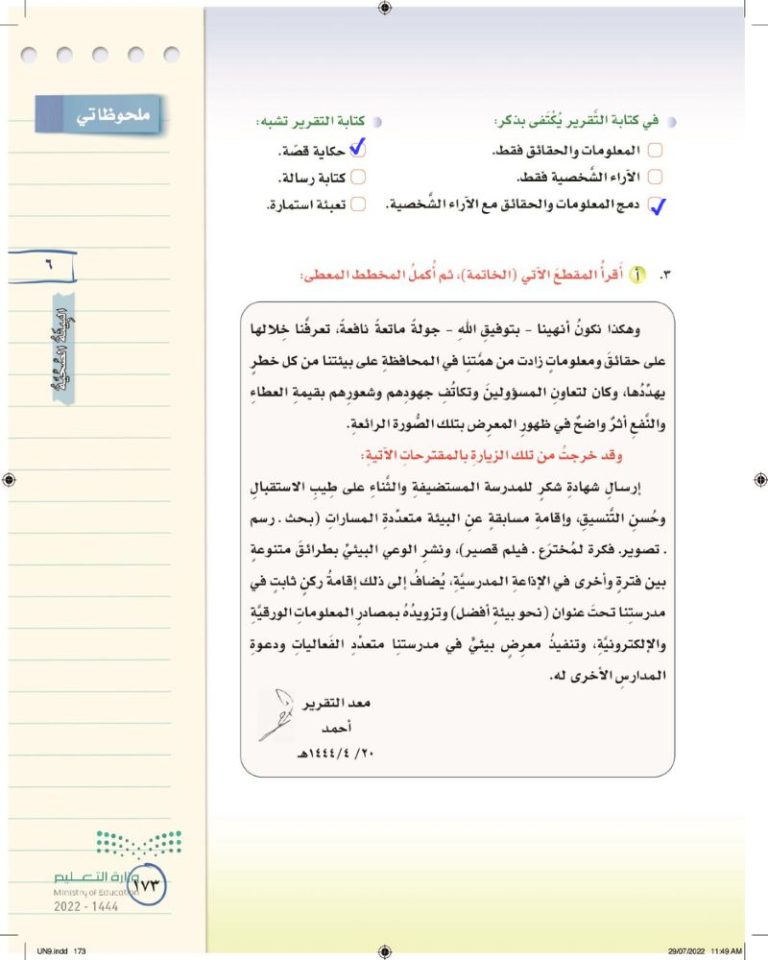 ملحوظاتي
في كتابة التَّقرير يُكْتَفى بذكر:
المعلومات والحقائق فقط.
الآراء الشَّخصية فقط.
دمج المعلومات والحقائق مع الآراء الشَّخصية.
كتابة التقرير تشبه:
حكاية قصّة.
كتابة رسالة.
تعبئة استمارة.
٦
البيئة الصحّيّة
٣. أ أَقرأُ المقطعَ الآتي (الخاتمة)، ثم أُكملُ المخطط المعطى:
وهكذا نكونُ أنهينا - بتوفيقِ اللهِ - جولة ماتعة نافعة، تعرفْنا خِلالها
على حقائقَ ومعلوماتٍ زادت من همَّتنا في المحافظةِ على بيئتنا من كل خطرٍ
يهدِّدُها، وكان لتعاونِ المسؤولينَ وتكاتُفِ جهودِهم وشعورِهم بقيمةِ العطاءِ
والنَّفعِ أثرٌ واضحٌ في ظهورِ المعرضِ بتلك الصُّورة الرائعةِ.
وقد خرجتُ من تلك الزيارةِ بالمقترحاتِ الآتيةِ:
إرسالِ شهادةِ شكرٍ للمدرسة المستضيفةِ والثَّناءِ على طِيبِ الاستقبالِ
وحُسنِ التَّنسيقِ، وإقامةِ مسابقةٍ عنِ البيئة متعدّدةِ المساراتِ (بحث . رسم
. تصوير. فكرة لمُختَرَع . فيلم قصير)، ونشرِ الوعي البيئيِّ بطرائقَ متنوعةٍ
بين فترةٍ وأخرى في الإذاعةِ المدرسيَّةِ، يُضافُ إلى ذلك إقامةُ ركنٍ ثابتٍ في
مدرستِنا تحتَ عنوان (نحو بيئةٍ أفضل) وتزويدُهُ بمصادرِ المعلوماتِ الورقيَّةِ
والإلكترونيَّةِ، وتنفيذُ معرضٍ بيئيٍّ في مدرستنا متعدِّد الفَعالياتِ ودعوة
المدارسِ الأخرى له.
معد التقرير
أحمد
٢٠/ ٤/ ١٤٤٤هـ
وزارة التعليم
Ministry of Education
2022 - 1444
١٧٣
UN9.indd 173
29/07/2022 11:49 AM